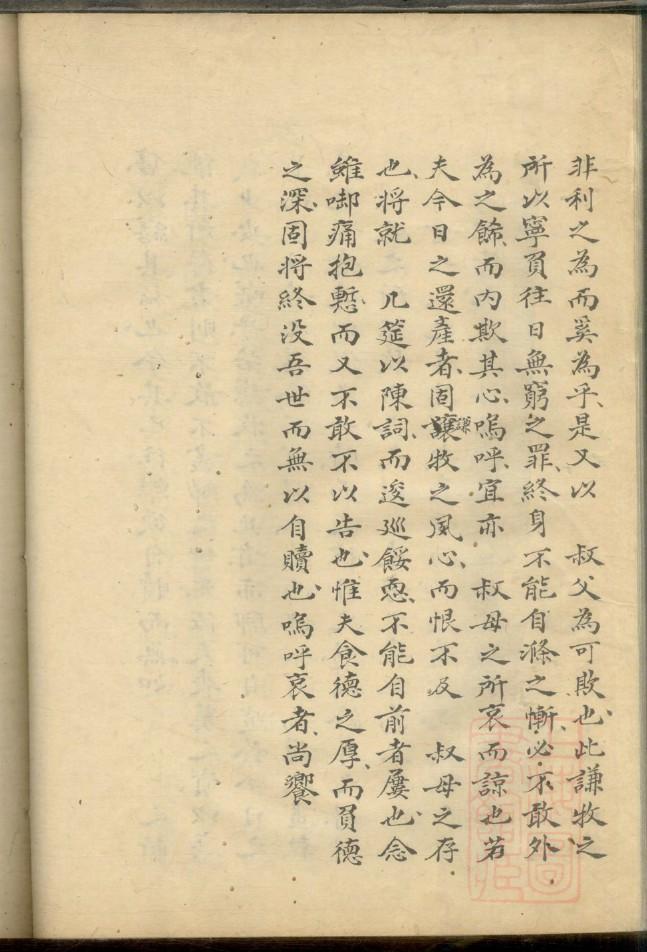 非利之為而奚為乎是又以　叔父為可欺也此謙牧之
所以寧負往日無窮之罪終身不能自滌之慚必不敢外
為之餙而內欺其心嗚呼宜亦　叔母之所哀而諒也若
夫今日之還產者固謙牧之風心而恨不及　叔母之存
也將就　几筵以陳詞而逡巡餒恧不能自前者屢也念
雖啣痛抱慙而又不敢不以告也惟夫食德之厚而負德
之深固將終没吾世而無以自贖也嗚呼哀者尚饗